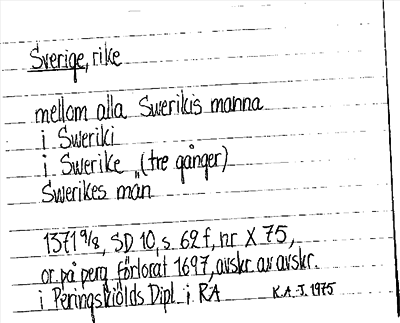 Sverige, rike
mellom alla Swerikis manna
i Sweriki
i Swerike „(tre gånger)
Swerikes män
1371 9/8, SD 10, s 62 f, nr X 75,
or. på perg. förlorat 1697, avskr. av avskr.
i Peringskiölds Dipl. i RA K.A.J. 1975